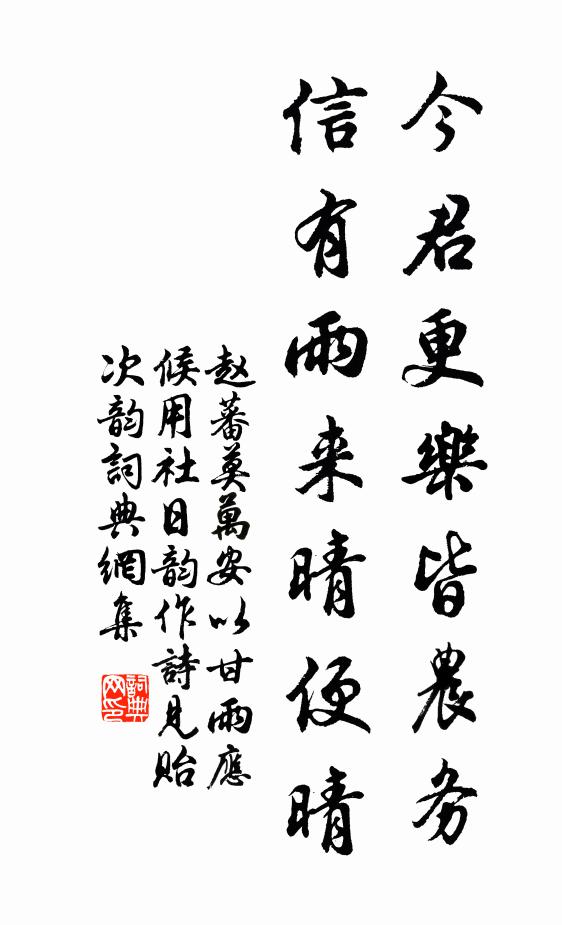 今君更樂皆農务
信有雨来晴便晴
赵蕃莫萬安以甘雨應
候用社日韵作詩見貽
次韵詞典網集
詞典网印